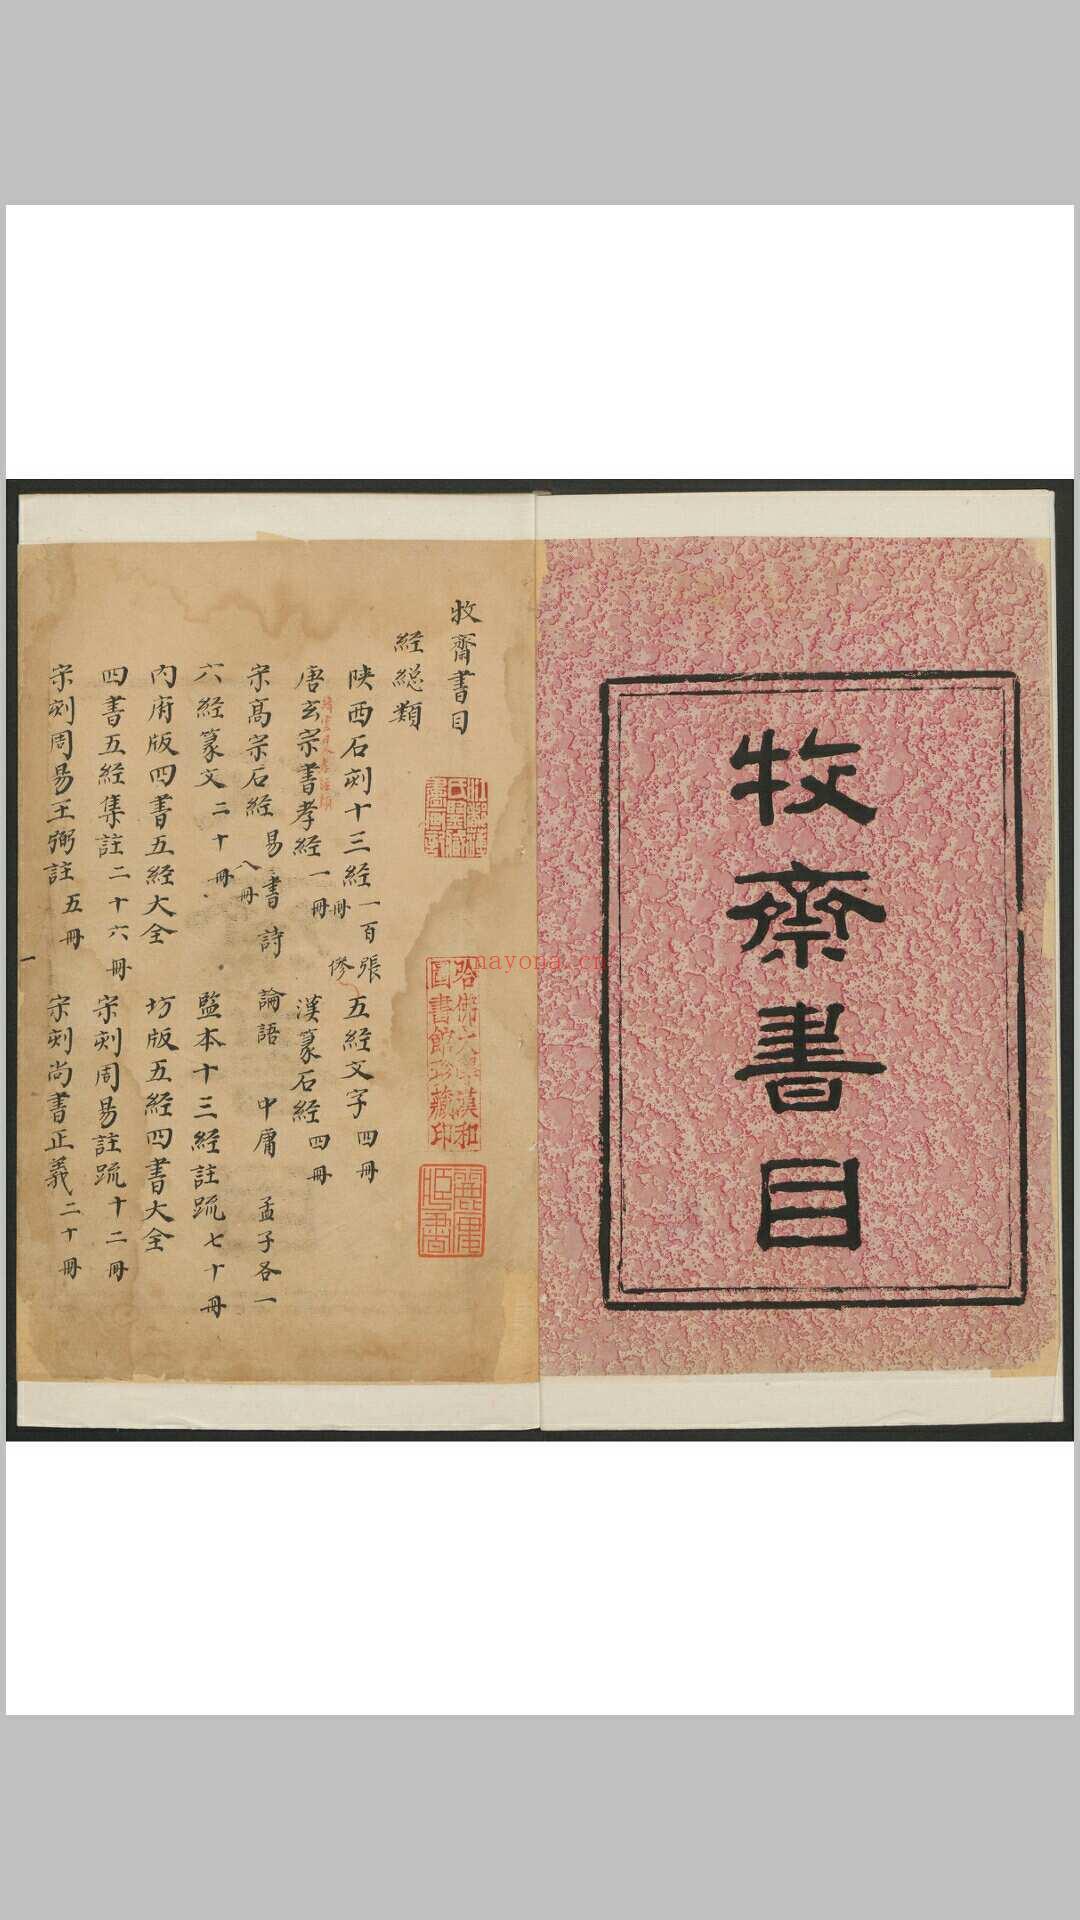 牧齋書目
牧齋書目
経總類
陕西石刻十三経一百張 五経文字四冊
唐玄宗書孝経一冊 漢篆石経四冊
宋髙宗石経易書詩 論語 中庸 孟子各一
八冊
六経篆文二十冊 監本十三経註疏七十冊
內府版四書五経大全 坊版五経四書大全
四書五経集註二十六冊 宋刻周易註疏十二冊
宋刻周易王弼註五冊 宋刻尚書正義二十冊
一
哈佛大學漢和
圖書館珍藏印
nayona.cn